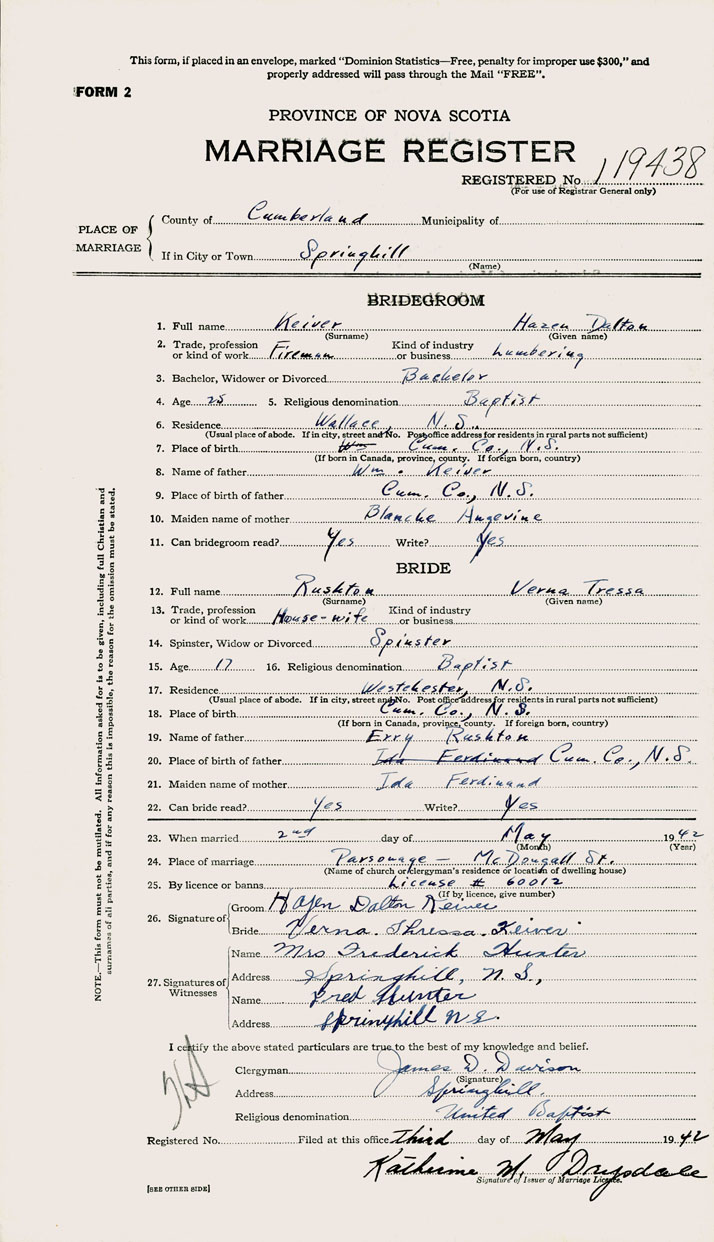 This form, if placed in an envelope, marked "Dominion Statistics—Free, penalty for improper use $300," and
properly addressed will pass through the Mail "FREE".
FORM 2
PROVINCE OF NOVA SCOTIA
MARRIAGE REGISTER
REGISTERED No. 119438
(For use of Registrar General only)
PLACE OF MARRIAGE
County of Cumberland Municipality of
If in City or Town Springhill
(Name)
BRIDEGROOM
1. Full name Keiver Hazen Dalton
(Surname) (Given name)
2. Trade, profession or kind of work Fireman Kind of industry or business Lumbering
3. Bachelor, Widower or Divorced Bachelor
4. Age 25 5. Religious denomination Baptist
6. Residence Wallace, N.S.
(Usual place of abode. If in city, street and No. Post office address for residents in rural parts not sufficient)
7. Place of birth Wm Cum. Co., N.S.
(If born in Canada, province, county. If foreign born, country)
8. Name of father Wm. Keiver
9. Place of birth of father Cum. Co., N.S.
10. Maiden name of mother Blanche Angevine
11. Can bridegroom read? Yes Write? Yes
BRIDE
12. Full name Rushton Verna Tressa
(Surname) (Given name)
13. Trade, profession or kind of work House-wife Kind of industry or business
14. Spinster, Widow or Divorced Spinster
15. Age 17 16. Religious denomination Baptist
17. Residence Westchester, N.S.
(Usual place of abode. If in city, street and No. Post office address for residents in rural parts not sufficient)
18. Place of birth Cum. Co., N.S.
(If born in Canada, province, county. If foreign born, country)
19. Name of father Erry Rushton
20. Place of birth of father Ida Ferdinand Cum. Co., N.S.
21. Maiden name of mother Ida Ferdinand
22. Can bride read? Yes Write? Yes
23. When married 2nd day of May 1942
(Month) (Year)
24. Place of marriage Parsonage - McDougall St.
(Name of church or clergyman's residence or location of dwelling house)
25. By licence or banns License # 60012
(If by licence, give number)
26. Signature of
Groom Hazen Dalton Keiver
Bride Verna. Thressa. Keiver
27. Signatures of Witnesses
Name Mrs Frederick Hunter
Address Springhill, N.S.,
Name Fred Hunter
Address Springhill N.S.
I certify the above stated particulars are true to the best of my knowledge and belief.
Clergyman James D. Davison
(Signature)
Address Springhill.
Religious denomination United Baptist
Registered No. Filed at this office third day of May 1942
Katherine M. Drysdale
Signature of Issuer of Marriage Licence.
[SEE OTHER SIDE]
NOTE.—This form must not be mutilated. All information asked for is to be given, including full Christian and
surnames of all parties, and if for any reason this is impossible, the reason for the omission must be stated.